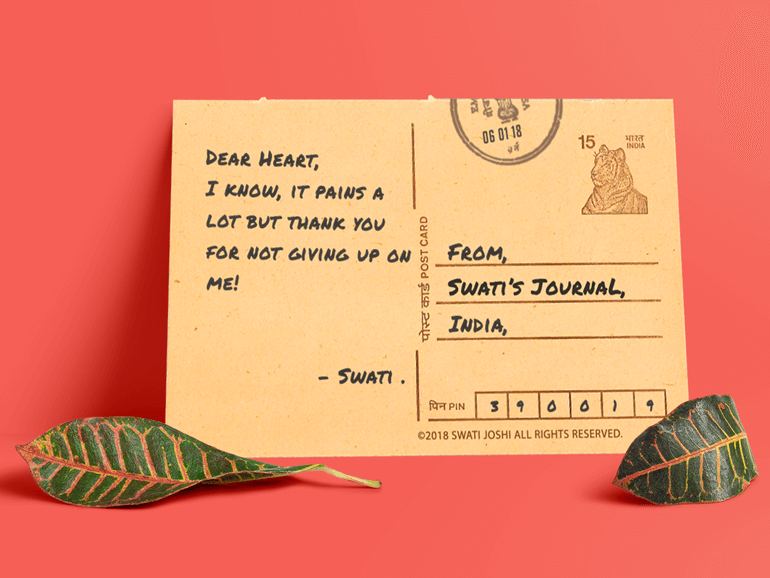 DEAR HEART,
I KNOW, IT PAINS A
LOT BUT THANK YOU
FOR NOT GIVING UP ON
ME!
- SWATI .
पोस्ट कार्ड POST CARD
06 01 18
15
भारत
INDIA
FROM,
SWATI'S JOURNAL,
INDIA,
पिन PIN 390019
©2018 SWATI JOSHI ALL RIGHTS RESERVED.